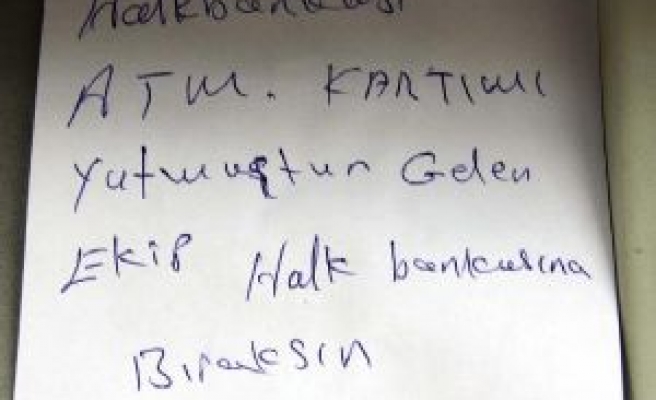 Halkbankası
ATM. KARTIMI
Yutmuştur Gelen
Ekip Halk bankasına
Bıraksın